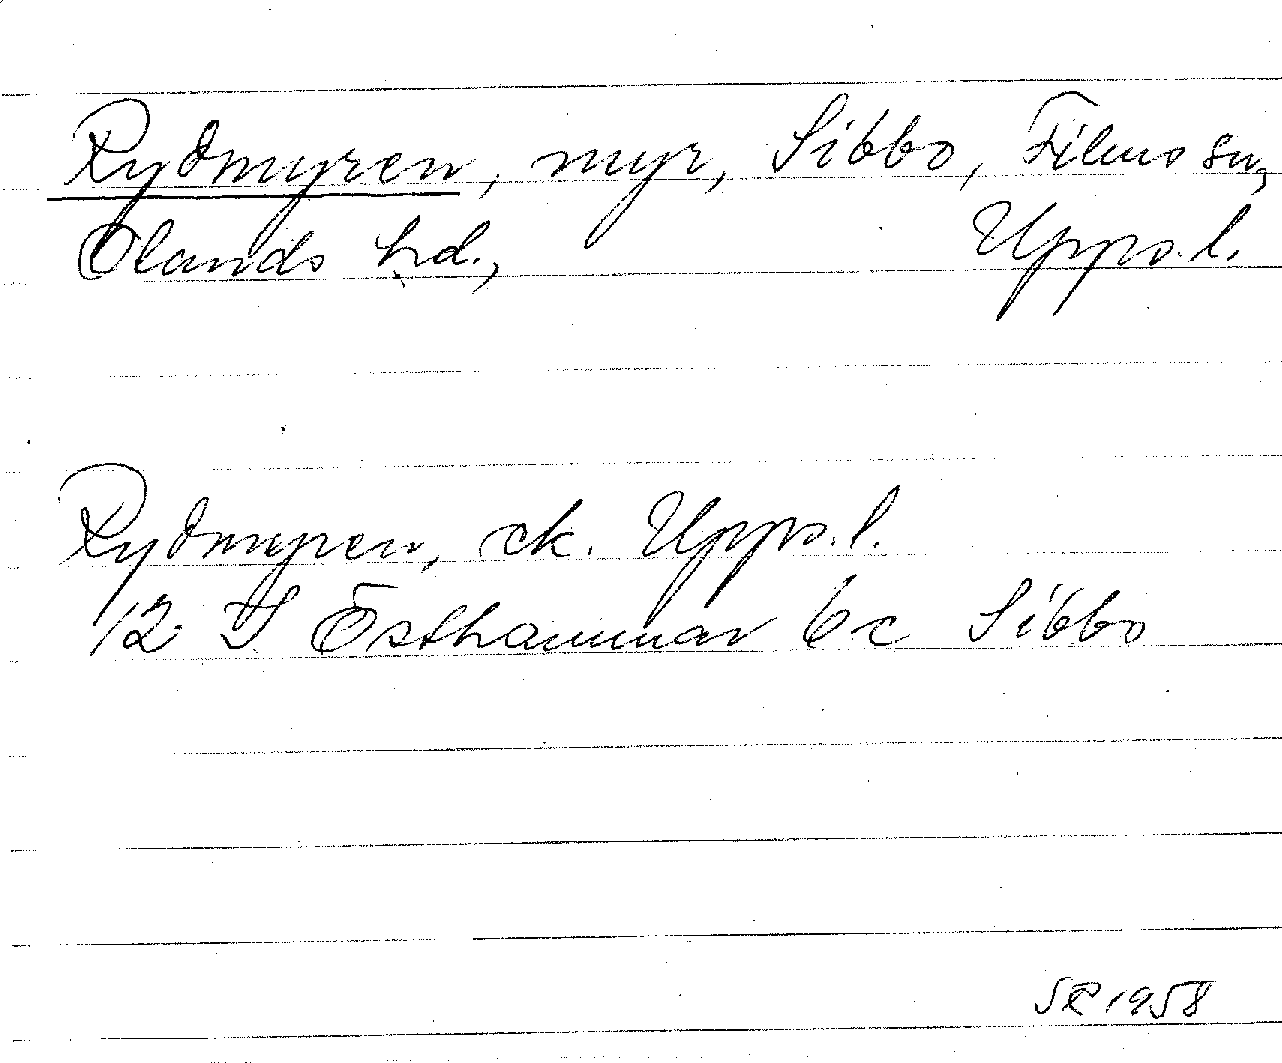 Rydmyren, myr, Sibbo, Films sn,
Olands hd., Upps. l.
Rydmyren, ek. Upps. l.
12 I Östhammar 6c Sibbo
SR 1958